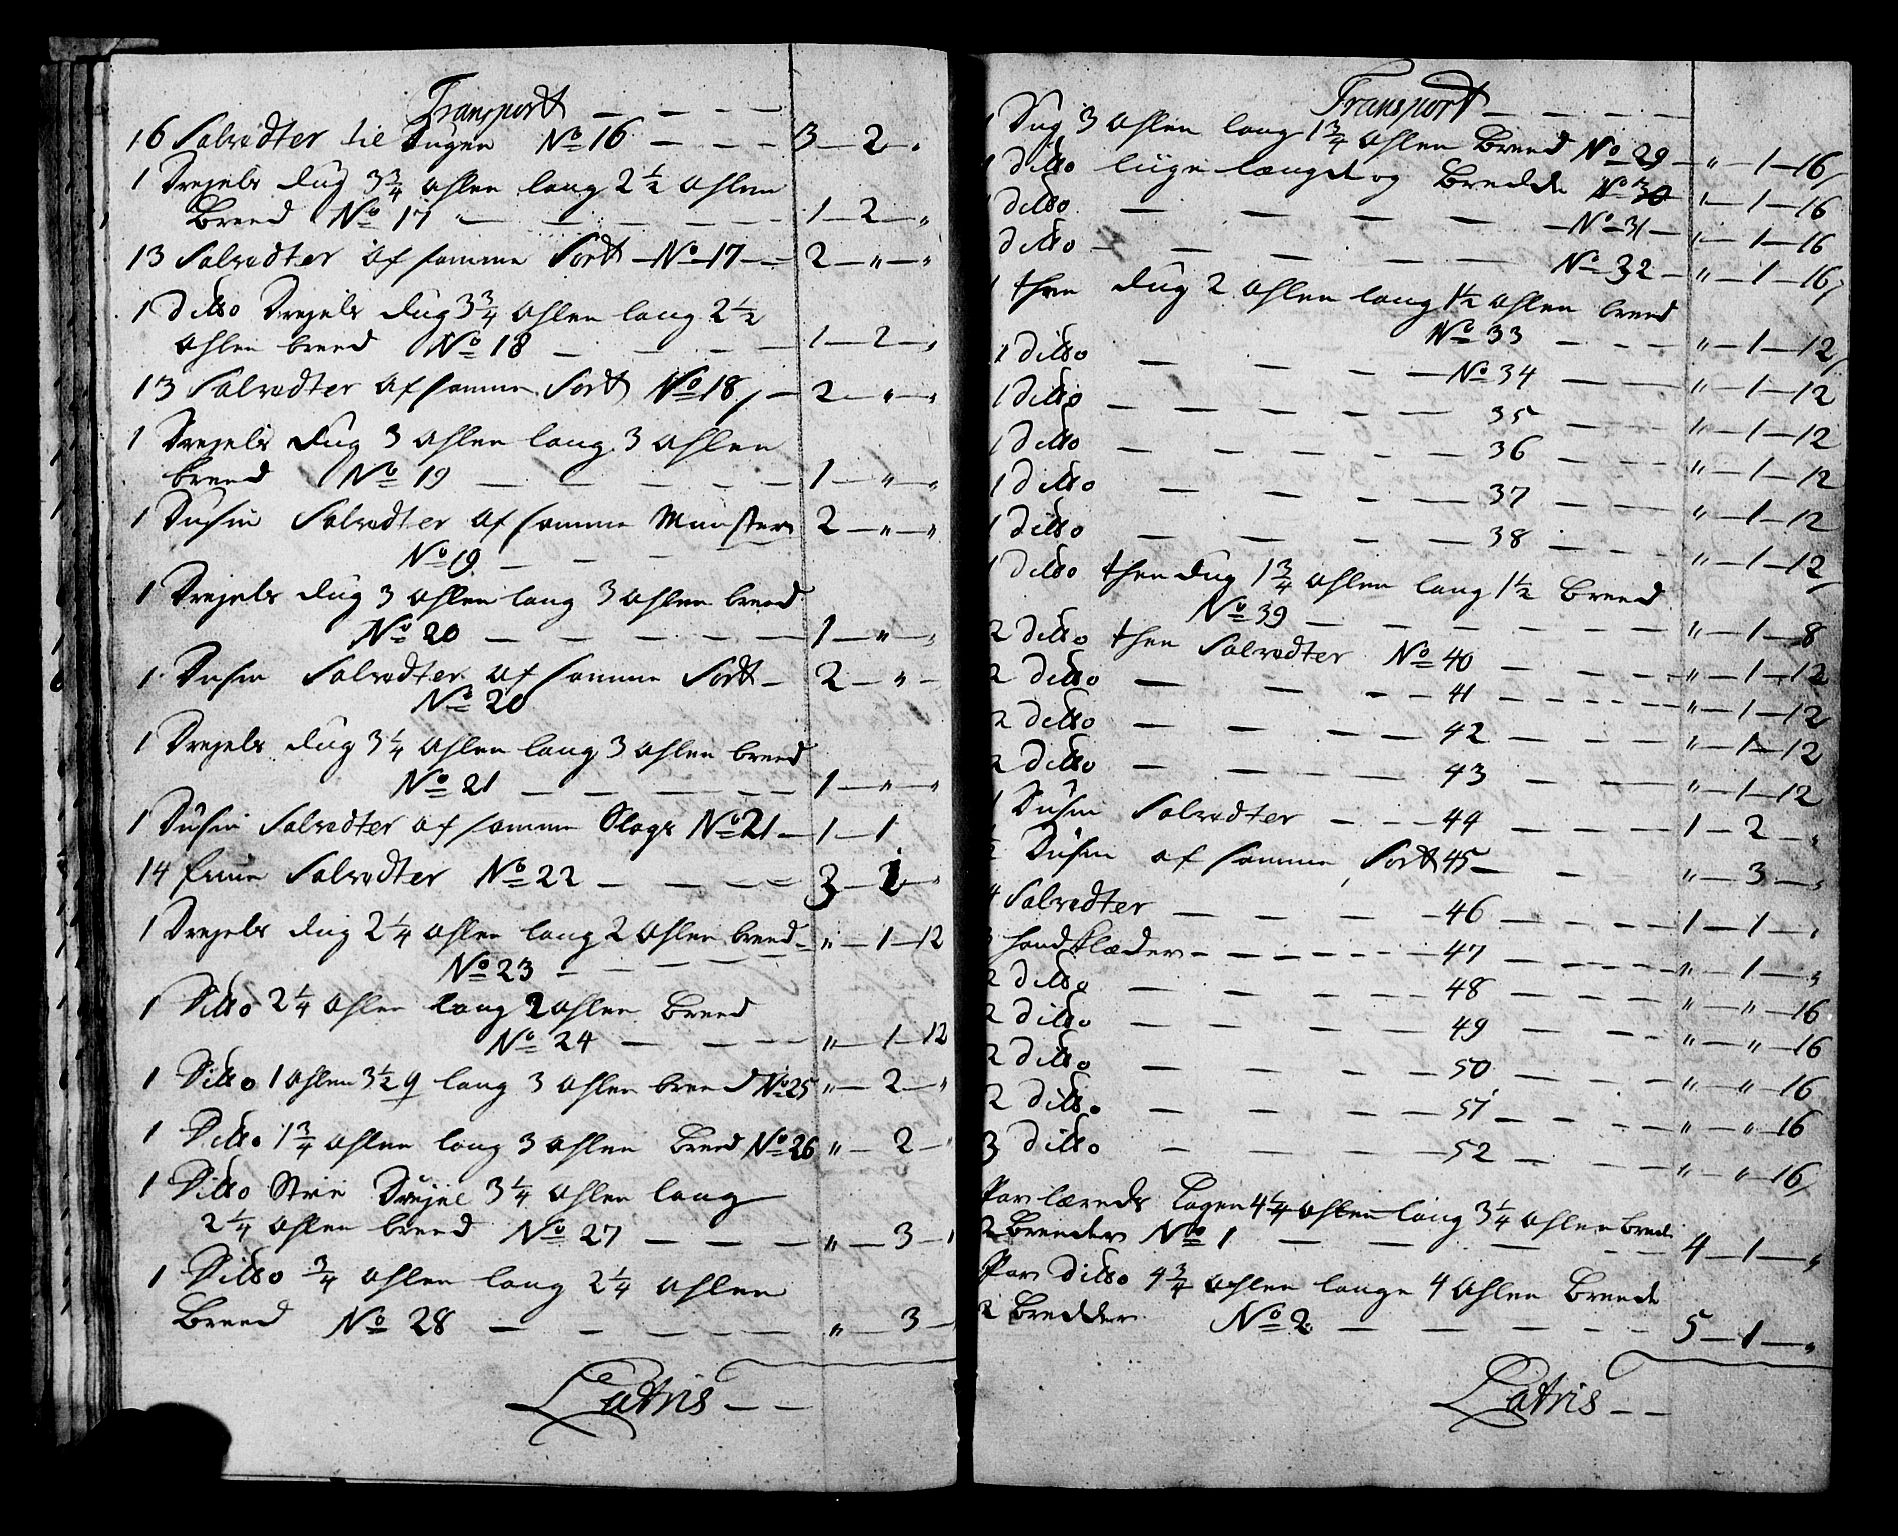 Transport — — — —
16 Salvedter til Dugen No 16 — — — 3 — 2 — "
1 Drejels dug 3 3/4 ahlen lang 2 1/2 ahlen
Breed No 17 — — — — — 1 — 2 — "
13 Salvedter af samme Sort — No 17 — 2 — " — "
1 dito Drejels dug 3 3/4 ahlen lang 2 1/2
ahlen breed No 18 — — — — 1 — 2 — "
13 Salvedter af samme Sort No 18 — 2 — " — "
1 Drejels dug 3 ahlen lang 3 ahlen
breed No 19 — — — — — 1 — " — "
1 Dusin Salvedter af samme Munster 2 — " — "
No 19 — —
1 Drejels dug 3 ahlen lang 3 ahlen breed
No 20 — — — — — 1 — " — "
1 Dusin Salvedter af samme Sort — 2 — " —
No 20
1 Drejels dug 3 1/4 ahlen lang 3 ahlen breed
No 21 — — — — — 1 — " — "
1 Dusin Salvedter af samme Slags No 21 — 1 — 1
14 fiine Salvedter No 22 — — — 3 — — "
1 Drejels dug 2 1/4 ahlen lang 2 ahlen breed — " — 1 — 12
No 23 — — — —
1 Dito 2 1/4 ahlen lang 2 ahlen Breed
No 24 — — — — " — 1 — 12
1 Dito 1 ahlen 3 1/2 q lang 3 ahlen breed No 25 " — 2 — "
1 Dito 1 3/4 ahlen lang 3 ahlen Breed No 26 " — 2 — "
1 Dito Strie Drejel 3 1/4 ahlen lang
2 1/4 ahlen breed No 27 — — — — " — 3 —
1 Dito 3/4 ahlen lang 2 1/4 ahlen
Breed No 28 — — — — — " — 3 —
Latris — —
Transport — — — —
1 Dug 3 ahlen lang 1 3/4 ahlen Breed No 29 — " — 1 — 16
1 dito liige længde og Bredde No 30 " — 1 — 16
1 dito — — — — — No 31 — " — 1 — 16
dito — — — — — No 32 — " — 1 — 16
1 thee dug 2 ahlen lang 1 1/2 ahlen breed
No 33 — — — — " — 1 — 12
1 dito — — — — No 34 — — — " — 1 — 12
1 dito — — — — 35 — — — " — 1 — 12
1 dito — — — — 36 — — — " — 1 — 12
1 dito — — — — 37 — — — " — 1 — 12
1 dito — — — — 38 — — — " — 1 — 12
1 dito thee dug 1 3/4 ahlen lang 1 1/2 Breed
No 39 — — — — — — " — 1 — 8
2 dito thee Salvedter No 40 — — — " — 1 — 12
2 dito — — — — 41 — — — " — 1 — 12
2 dito — — — — 42 — — — " — 1 — 12
2 dito — — — — 43 — — — " — 1 — 12
1 Dusin Salvedter — — — 44 — — — 1 — 2 — "
1/2 Dusin af samme Sort 45 — — — " — 3 — "
4 Salvedter — — — — 46 — — — 1 — 1 — "
3 haandklæder — — — — 47 — — — " — 1 — "
2 dito — — — — 48 — — — " — " — 16
2 dito — — — — 49 — — — " — " — 16
2 dito — — — — 50 — — — " — " — 16
2 dito — — — — 51 — — — " — " — 16
3 dito — — — — 52 — — — " — " — 16
Par lærreds Lagen 4 1/4 ahlen lang 3 1/4 ahlen breed
2 Breeder No 1 — — — — — 4 — 1 — "
Par dito 4 3/4 ahlen lange 4 ahlen Breede
2 Bredder No 2 — — — — 5 — 1 — "
Latris — —